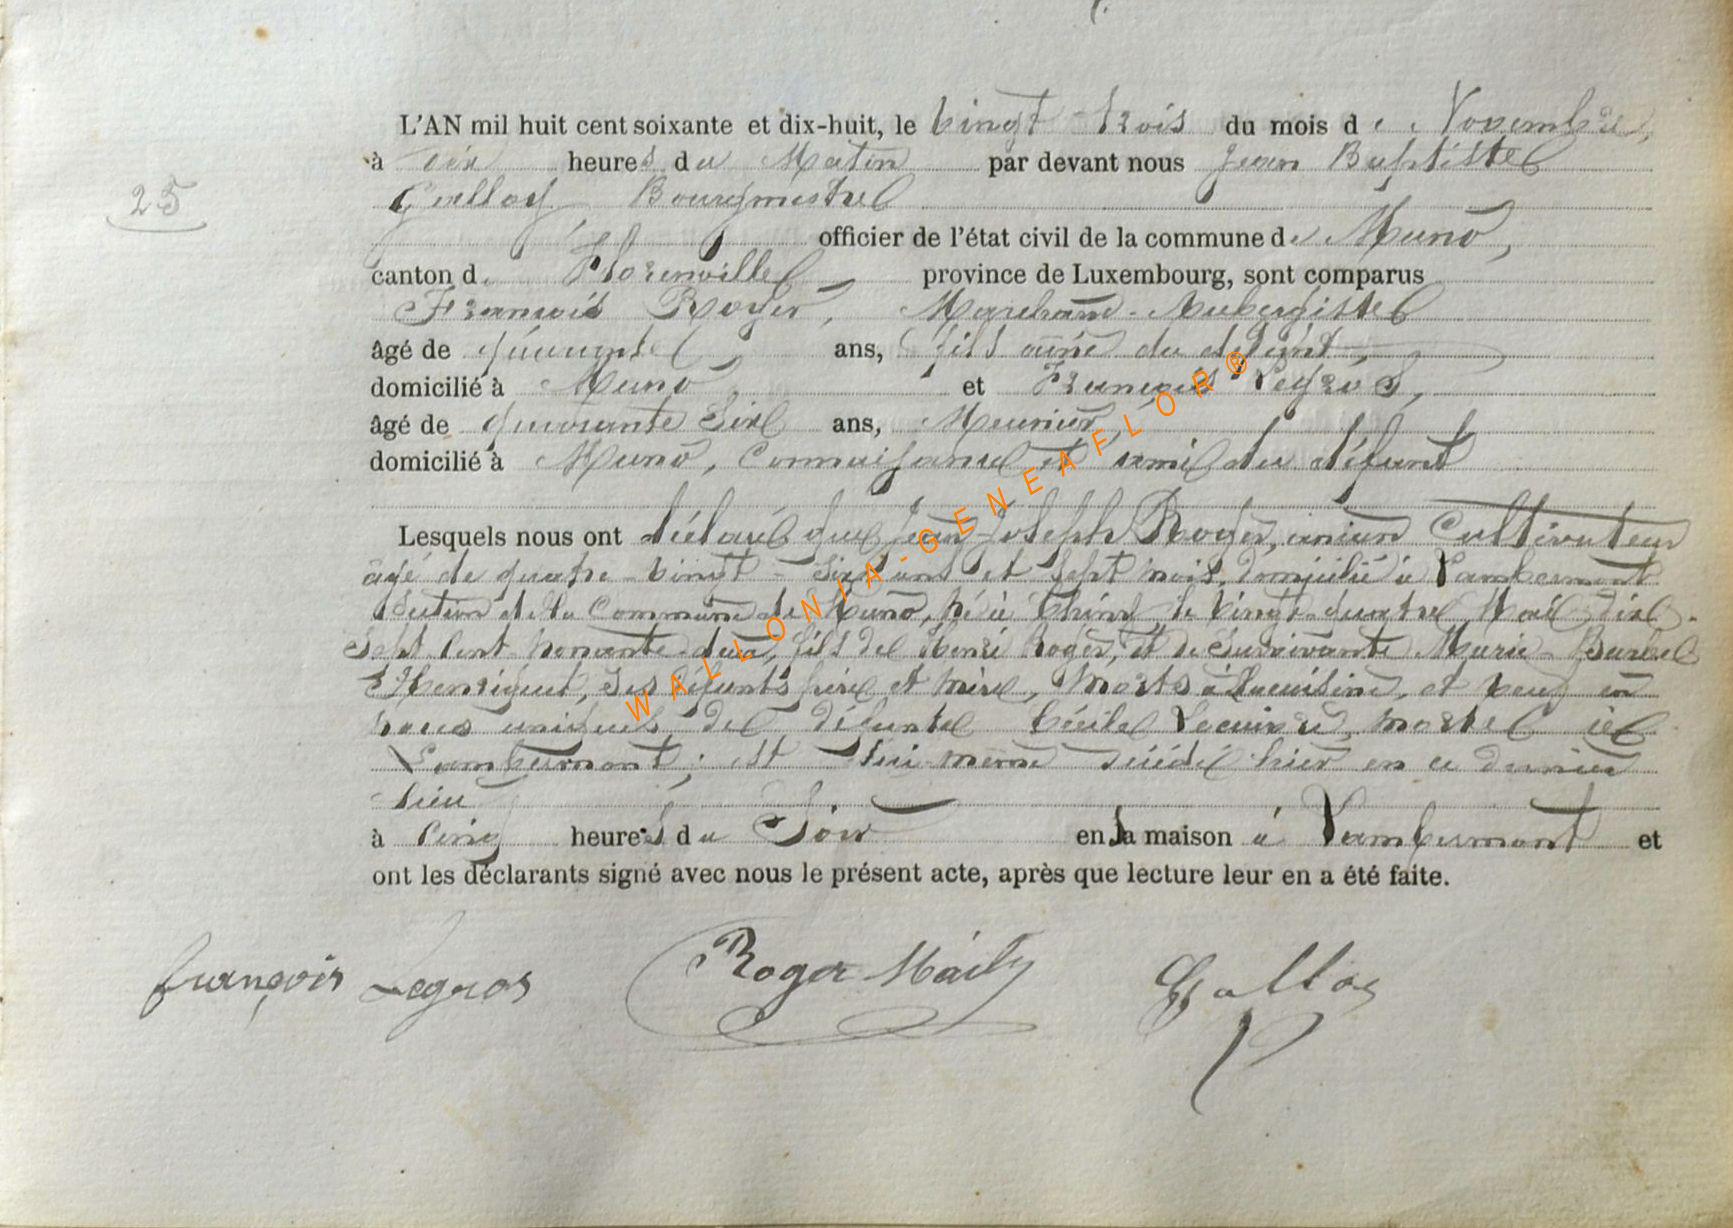 L'AN mil huit cent soixante et dix-huit, le vingt-trois du mois de Novembre,
à dix heures du Matin par devant nous Jean Baptiste
25
Galloy, Bourgmestre
officier de l'état civil de la commune de Muno,
canton de Florenville, province de Luxembourg, sont comparus
François Roger, Marchand-Aubergiste
âgé de quarante ans, fils aîné du défunt,
domicilié à Muno et François Legros,
âgé de quarante six ans, Meunier,
domicilié à Muno, connaissance et ami du défunt
Lesquels nous ont déclaré que Jean-Joseph Roger, ancien Cultivateur
âgé de quatre-vingt-six ans et sept mois, domicilié à Lambermont
section de la Commune de Muno, né à Chiny le vingt-quatre Mai dix-
sept cent nonante-deux, fils de Henri Roger, et de survivante Marie-Barbe
Henriquet, ses défunts père et mère, morts à Lacuisine, et veuf en
noces uniques de défunte Cécile Lacuire, morte
Lambermont; est lui-même décédé hier en ce dernier
lieu
à cinq heures du Soir en sa maison à Lambermont et
ont les déclarants signé avec nous le présent acte, après que lecture leur en a été faite.
françois Legros Roger-Maily Galloy
WALLONIA-GENEAFLOR®